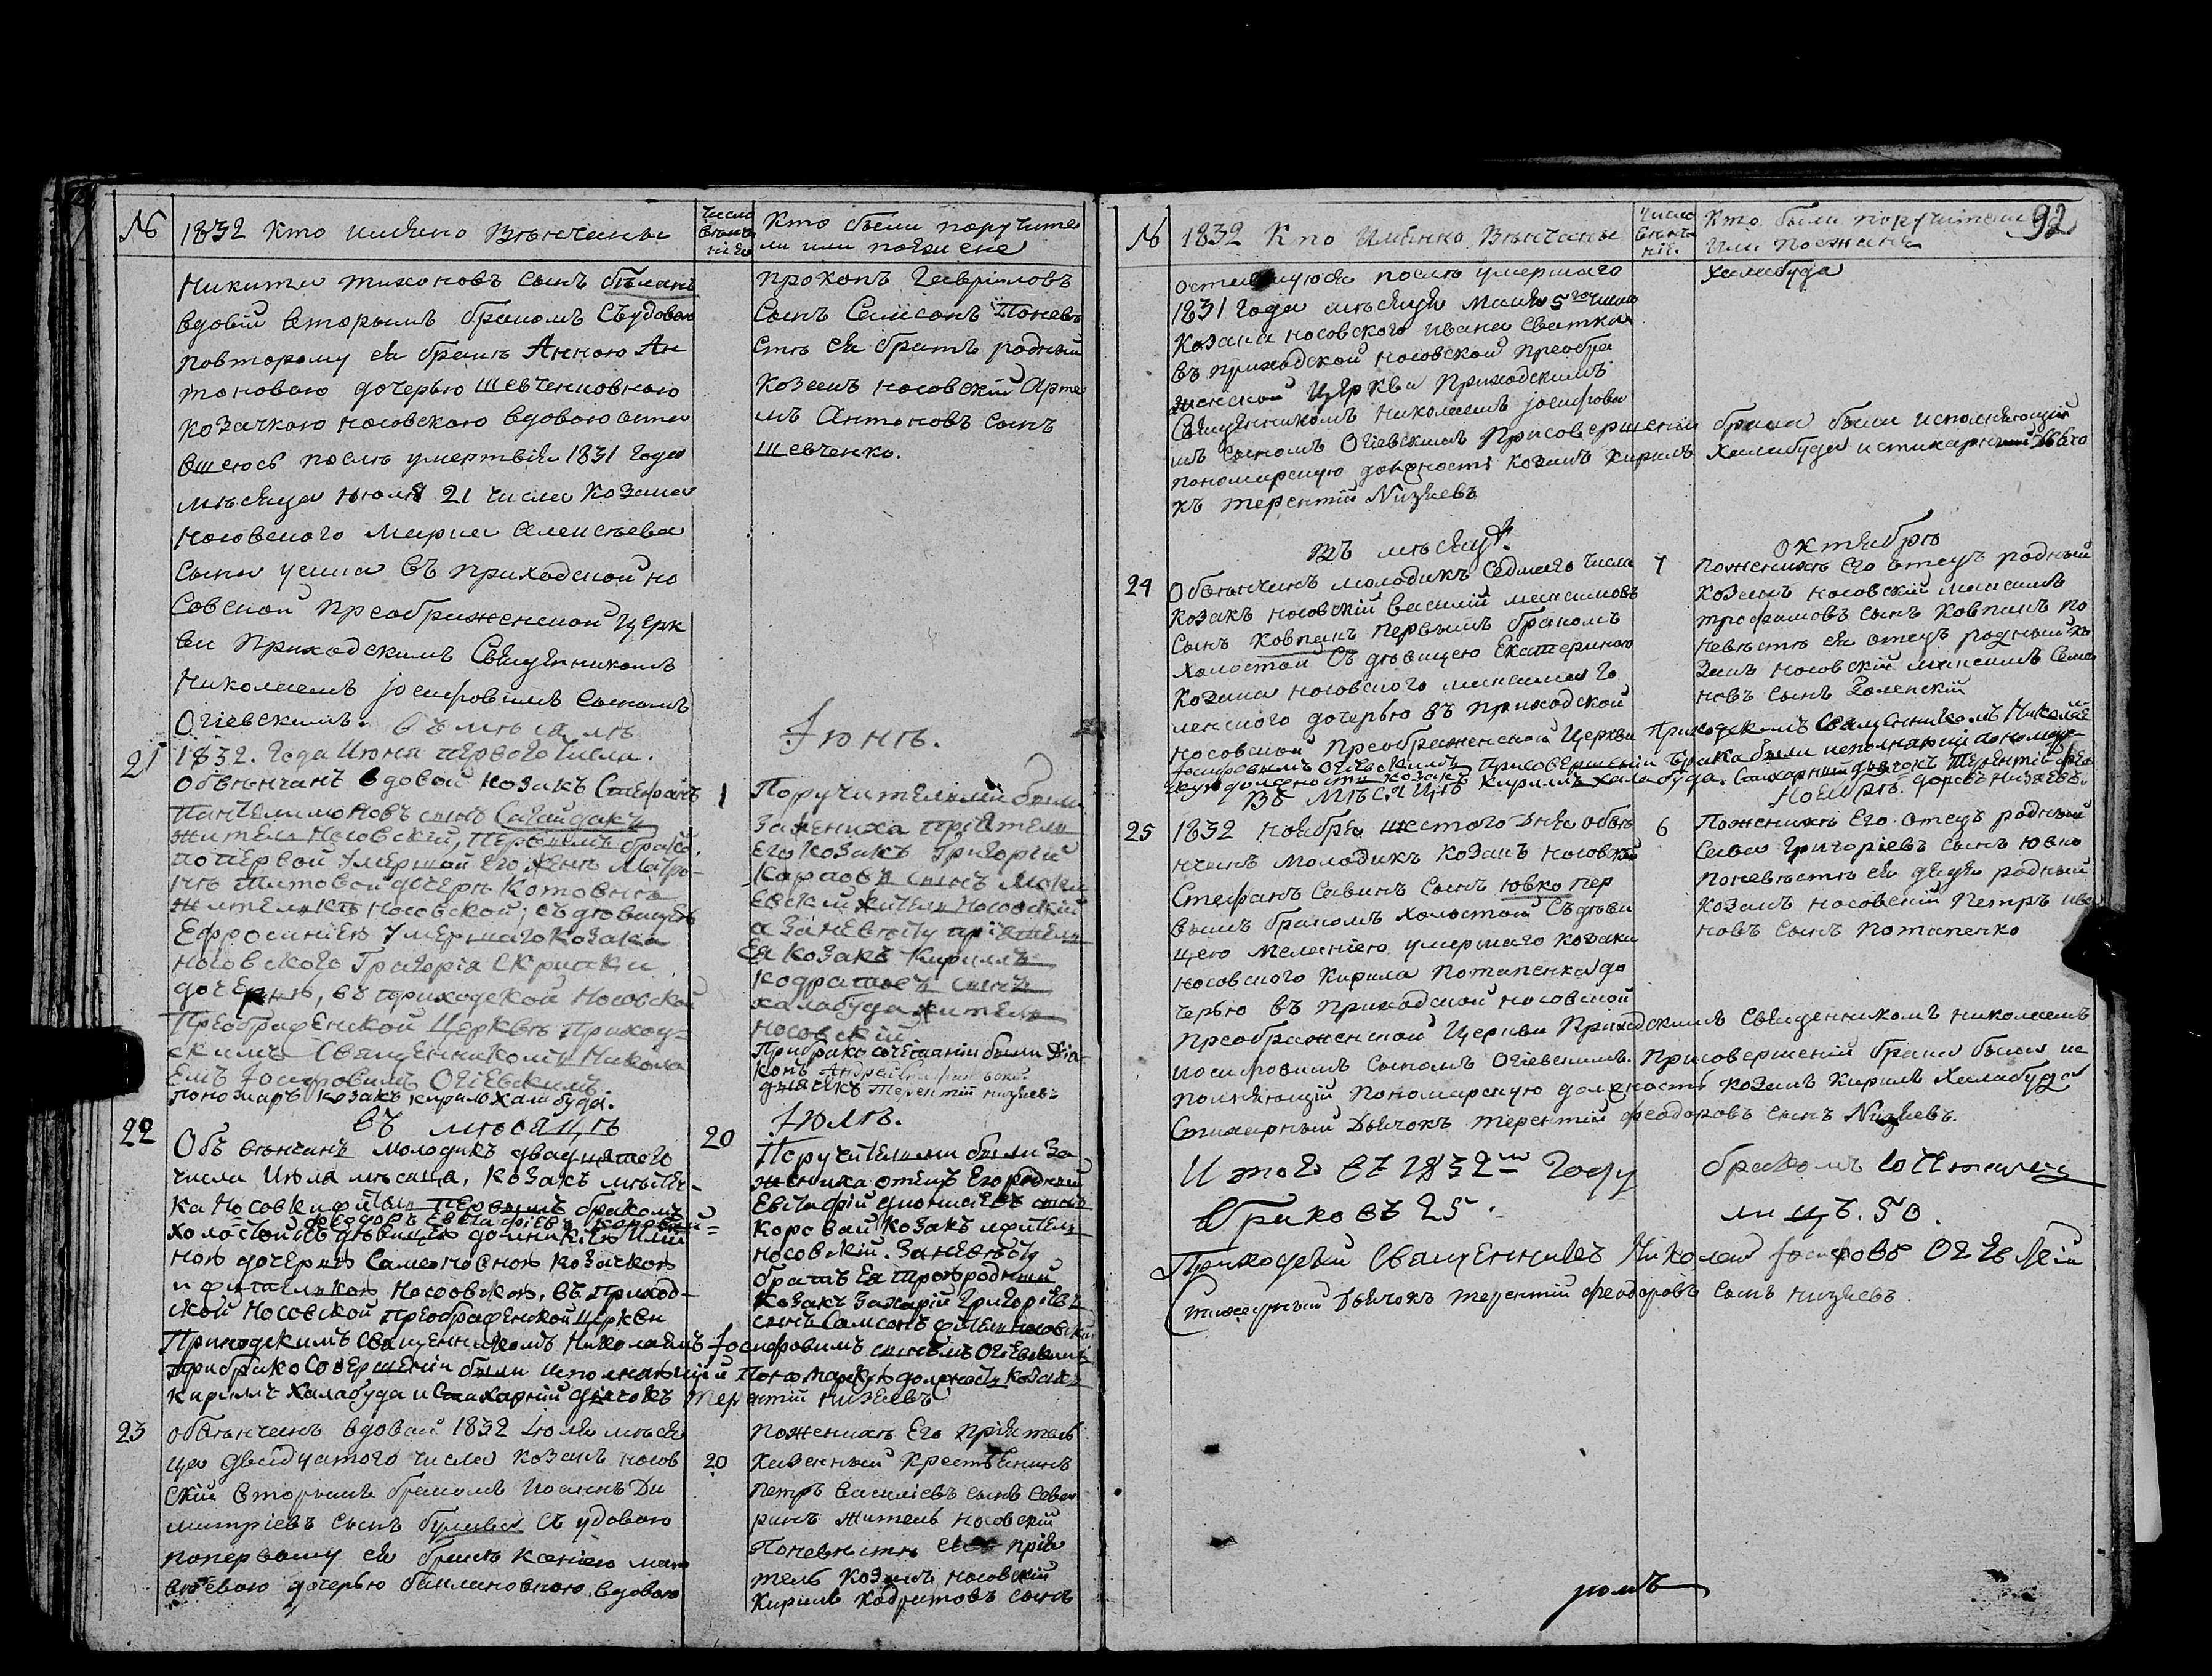 №
1832 Кто имянно Венчаны
Число венча нія
Кто были поручите
ли или поезжане
Никита тихоновъ сынъ бѣланъ
вдовій вторымъ бракомъ съ удовою
повторому ея бракѣ Анною Ан
тоновою дочерью шевченковною
козачкою носовскою вдовою оста
вшеюсь послѣ умертвія 1831 года
мѣсяца июля 21 числа козака
носовского Марка Алексѣева
сына усика въ приходской но
совской преображенской церк
ви Приходскимъ Священникомъ
Николаемъ јосифовимъ сыномъ
Огіевскимъ. въ мѣсяцѣ
прокопъ Гавріловъ
сынъ Самсонъ Поневѣ
стѣ ея братъ родный
козакъ носовскій Арте
мъ Антоновъ сынъ
шевченко.
Іюнѣ.
21
1832. Года Июня первого числа.
обвѣнчанъ вдовой козакъ Стефанъ
Пантелимоновъ сынъ Сагайдакъ
житель Носовскій, первымъ бракомъ
по первой умершой его женѣ Матро-
нѣ Титовой дочерѣ Котовнѣ
жителькѣ носовской; съ дѣвицею
Ефросиніею умершаго козака
носовского Григорія скрипки
дочерью, въ приходской Носовской
Преображенской Церквѣ Приход-
скимъ Священникомъ Никола
емъ Јосифовимъ Огіевскимъ.
пономаръ козакъ кирило халабуда.
1
Поручителями были
За жениха пріятель
его козакъ Григорій
Карповъ сынъ
житель Носовскій
а За невѣсту пріятель
Ея козакъ Кириллъ
кодратовъ сынъ
халабуда житель
носовскій
При бракосочетаніи были Діа-
конъ Андрей
дьячекъ Терентій низяевъ
въ мѣсяцѣ
Іюлѣ.
22
Объ венчанъ молодикъ двадцятого
числа Июля мѣсяца, козакъ мѣстеч-
ка Носовки житель первымъ бракомъ
феодоръ Евстафіевъ коровай
холостой съ дѣвицею домникіею Илли
ною дочерью Самсоновною козачкою
и жителькою Носовскою, въ приход-
ской Носовской преображенской церкви
Приходскимъ священникомъ Николаемъ Јосифовимъ сыномъ Огіевскимъ
при бракосовершеніи были исполняющій Пономарскую должность козакъ
кирилъ Халабуда и Стихарній дьячокъ терентій низяевъ
20
Поручителями были За
жениха отецъ Его родный
Евстафій сынъ
коровай козакъ житель
носовскій. За невѣсту
братъ Ея троюродный
козакъ Захарій Григоріевъ
сынъ Самсонъ житель носовскій
23
обвѣнчанъ вдовий 1832 Июля мѣся
ца двадцатого числа козакъ носов
скій вторымъ бракомъ Иоаннъ Ди
митріевъ сынъ булава съ удовою
попервому ея бракѣ ксеніею мат
вѣевою дочерью баклановною вдовою
20
Поженихѣ Его пріятель
казенный крестьянинъ
петръ василіевъ сынъ севе
ринъ житель носовскій
Поневѣстѣ ея прія
тель козакъ носовскій
кирилъ кодратовъ сынъ
№
1832 Кто Имянно Венчаны
Число венча нія.
Кто были поручители
Или поезжане
92
оставшуюся послѣ умершаго
1831 года мѣсяця Мая 5го числа
козака носовского ивана сватка
въ приходской носовской преобра
женской церкви Приходскимъ
Священникомъ Николаемъ јосифови
мъ сыномъ Огіевскимъ Присовершеніи брака были исполняющій
пономарскую должность козакъ кирилъ халабуда и стихарный дьячо
къ терентій Низяевъ
халабуда
Въ мѣсяцѣ
октябрѣ
24
Обвѣнчанъ молодикъ седмаго числа
козакъ носовскій василій максимовъ
сынъ ковпакъ первымъ бракомъ
холостой съ дѣвицею Екатериною
козака носовского максима го
ленского дочерью въ приходской
носовской преображенской церкви Приходскимъ Священникомъ Николае
јосифовимъ Огіевскимъ присовершеніи брака были исполняющій пономар-
скую должность козакъ кирилъ халабуда. Стихарный дьячокъ Терентій фео
доровъ низяевъ.
7
поженихѣ Его отецъ родный
козакъ носовскій максимъ
трофимовъ сынъ ковпакъ по
невѣстѣ ея отецъ родный ко
закъ носовскій максимъ семе
новъ сынъ Голенскій
въ мѣсяцѣ
Ноябрѣ.
25
1832 ноября шестого дня обвѣ
нчанъ молодикъ козакъ носовскій
Стефанъ Савинъ сынъ ювко пер
вымъ бракомъ холостой съ дѣви
цею Меланіею умершаго козака
носовского Кирила потапенка до
черью въ приходской носовской
преображенской церкви Приходскимъ священникомъ николаемъ
иосифовимъ сыномъ Огіевскимъ. Присовершеніи брака были ис
полняющій пономарскую должность козакъ кирилъ халабуда
Стихарный дьячокъ терентій феодоровъ сынъ Низяевъ.
6
Поженихѣ Его отецъ родный
Сава Григоріевъ сынъ ювко
поневѣстѣ ея дядя родный
козакъ носовскій Петръ ива
новъ сынъ потапенко
Итого въ 1832м Году бракомъ сочеталис
браковъ 25. лицъ. 50.
Приходскій Священникъ Николай Јосифовъ Огіевскій
Стихарный дьячокъ терентій феодоровъ сынъ низяевъ.